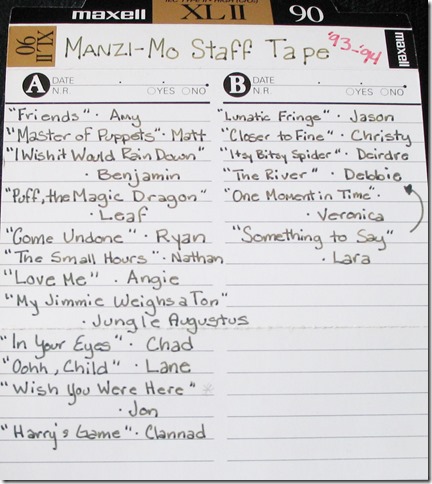 maxell XL II 90
XL II 90
MANZI-MO STAFF TAPE '93-'94
maxell
A DATE
N.R. YES NO
"Friends" · Amy
"Master of Puppets" · Matt
"I Wish it Would Rain Down"
· Benjamin
"Puff, the Magic Dragon"
· Leaf
"Come Undone" · Ryan
"The Small Hours" · Nathan
"Love Me" · Angie
"My Jimmie Weighs a Ton"
· Jungle Augustus
"In Your Eyes" · Chad
"Oohh, Child" · Lane
"Wish You Were Here"
· Jon
"Harry's Game" · Clannad
B DATE
N.R. YES NO
"Lunatic Fringe" · Jason
"Closer to Fine" · Christy
"Itsy Bitsy Spider" · Deirdre
"The River" · Debbie
"One Moment in Time" ·
Veronica
"Something to Say"
· Lara